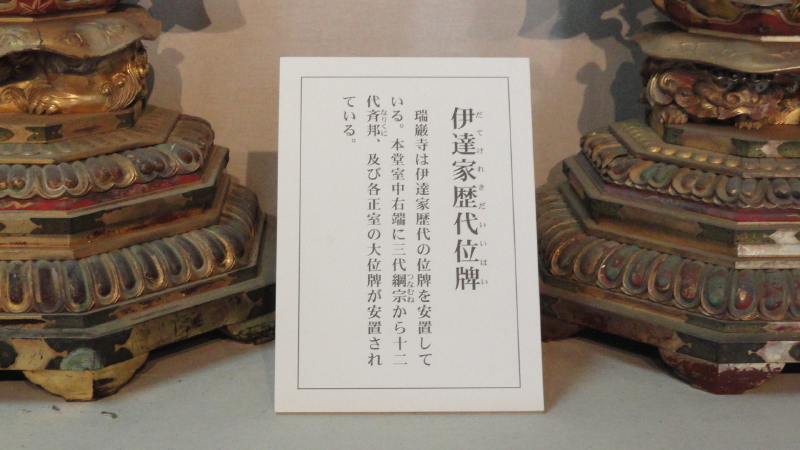 伊達家歴代位牌
だてけれきだいいはい
瑞巌寺は伊達家歴代の位牌を安置して
いる。本堂室中右端に三代綱宗から十二
つなむね
代斉邦、及び各正室の大位牌が安置され
なりくに
ている。